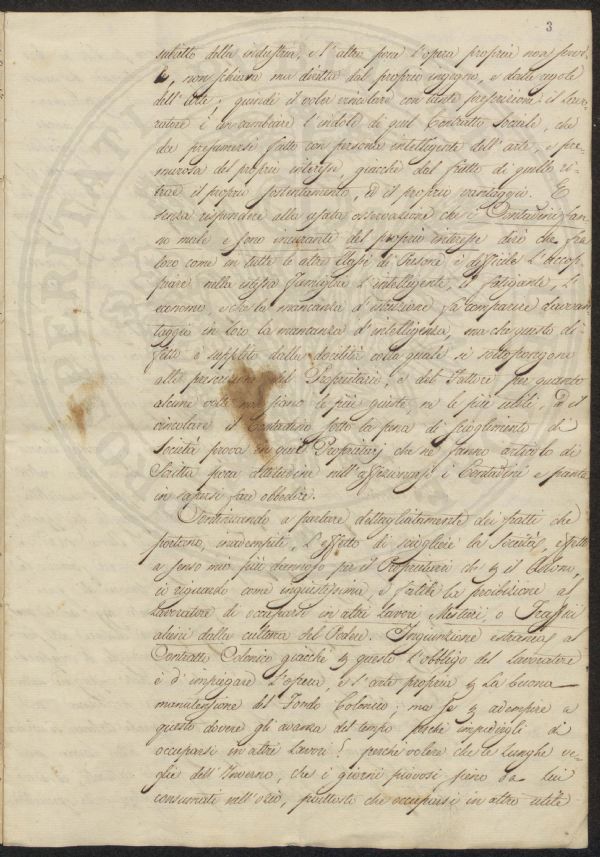 3
subietto della industria, e l'altro pone l'opera propria non servi-
le, non schiava ma diretta dal proprio ingegno, e dalle regole
dell'Arte; quindi il voler vincolare con tante prescrizioni il Lavo-
ratore è un cambiare l'indole di quel Contratto Sociale, che
dee presumersi fatto con persona intelligente dell'arte, e pre-
murosa del proprio interesse, giacchè dal frutto di quello ri-
trae il proprio sostentamento, ed il proprio vantaggio. E
senza rispondere alla usata osservazione che i Contadini fan-
no male e sono incuranti del proprio interesse dirò che fra
loro come in tutte le altre Classi di Persone è difficile l'accop-
piare nella istessa Famiglia l'intelligente, il faticante, l'
economo, e che la mancanza d'istruzione fa comparire davvan-
taggio in loro la mancanza d'intelligenza, ma che questo di-
fetto è supplito dalla docilità colla quale si sottopongono
alle prescrizioni del Proprietario, e del Fattore per quanto
alcune volte non siano le più giuste, nè le più utili, ed il
vincolare il Contadino sotto la pena di scioglimento di
Società prova in quei Proprietarj che ne fanno articolo di
Scritta poca attitudine nell'affezionarsi i Contadini e
in sapersi fare obbedire.
Continuando a parlare dettagliatamente dei patti che
portano, inadempiti, l'effetto di sciogliere la Società,
a senso mio più dannoso per il Proprietario che p il Colono,
io riguardo come ingiustissima, e fatale la proibizione al
Lavoratore di occuparsi in altri Lavori, Mestieri, o Traffici
alieni dalla cultura del Podere. Ingiunzione estranea al
Contratto Colonico giacchè p questo l'obbligo del lavoratore
è d'impiegare l'opera, e l'arte propria p la buona
manutenzione del Fondo Colonico; ma se p adempire a
questo dovere gli avanza del tempo perchè impedirgli di
occuparsi in altri Lavori? perchè volere che le lunghe ve-
glie dell'Inverno, che i giorni piovosi sieno da lui
consumati nell'ozio, piuttosto che occuparsi in altre utili